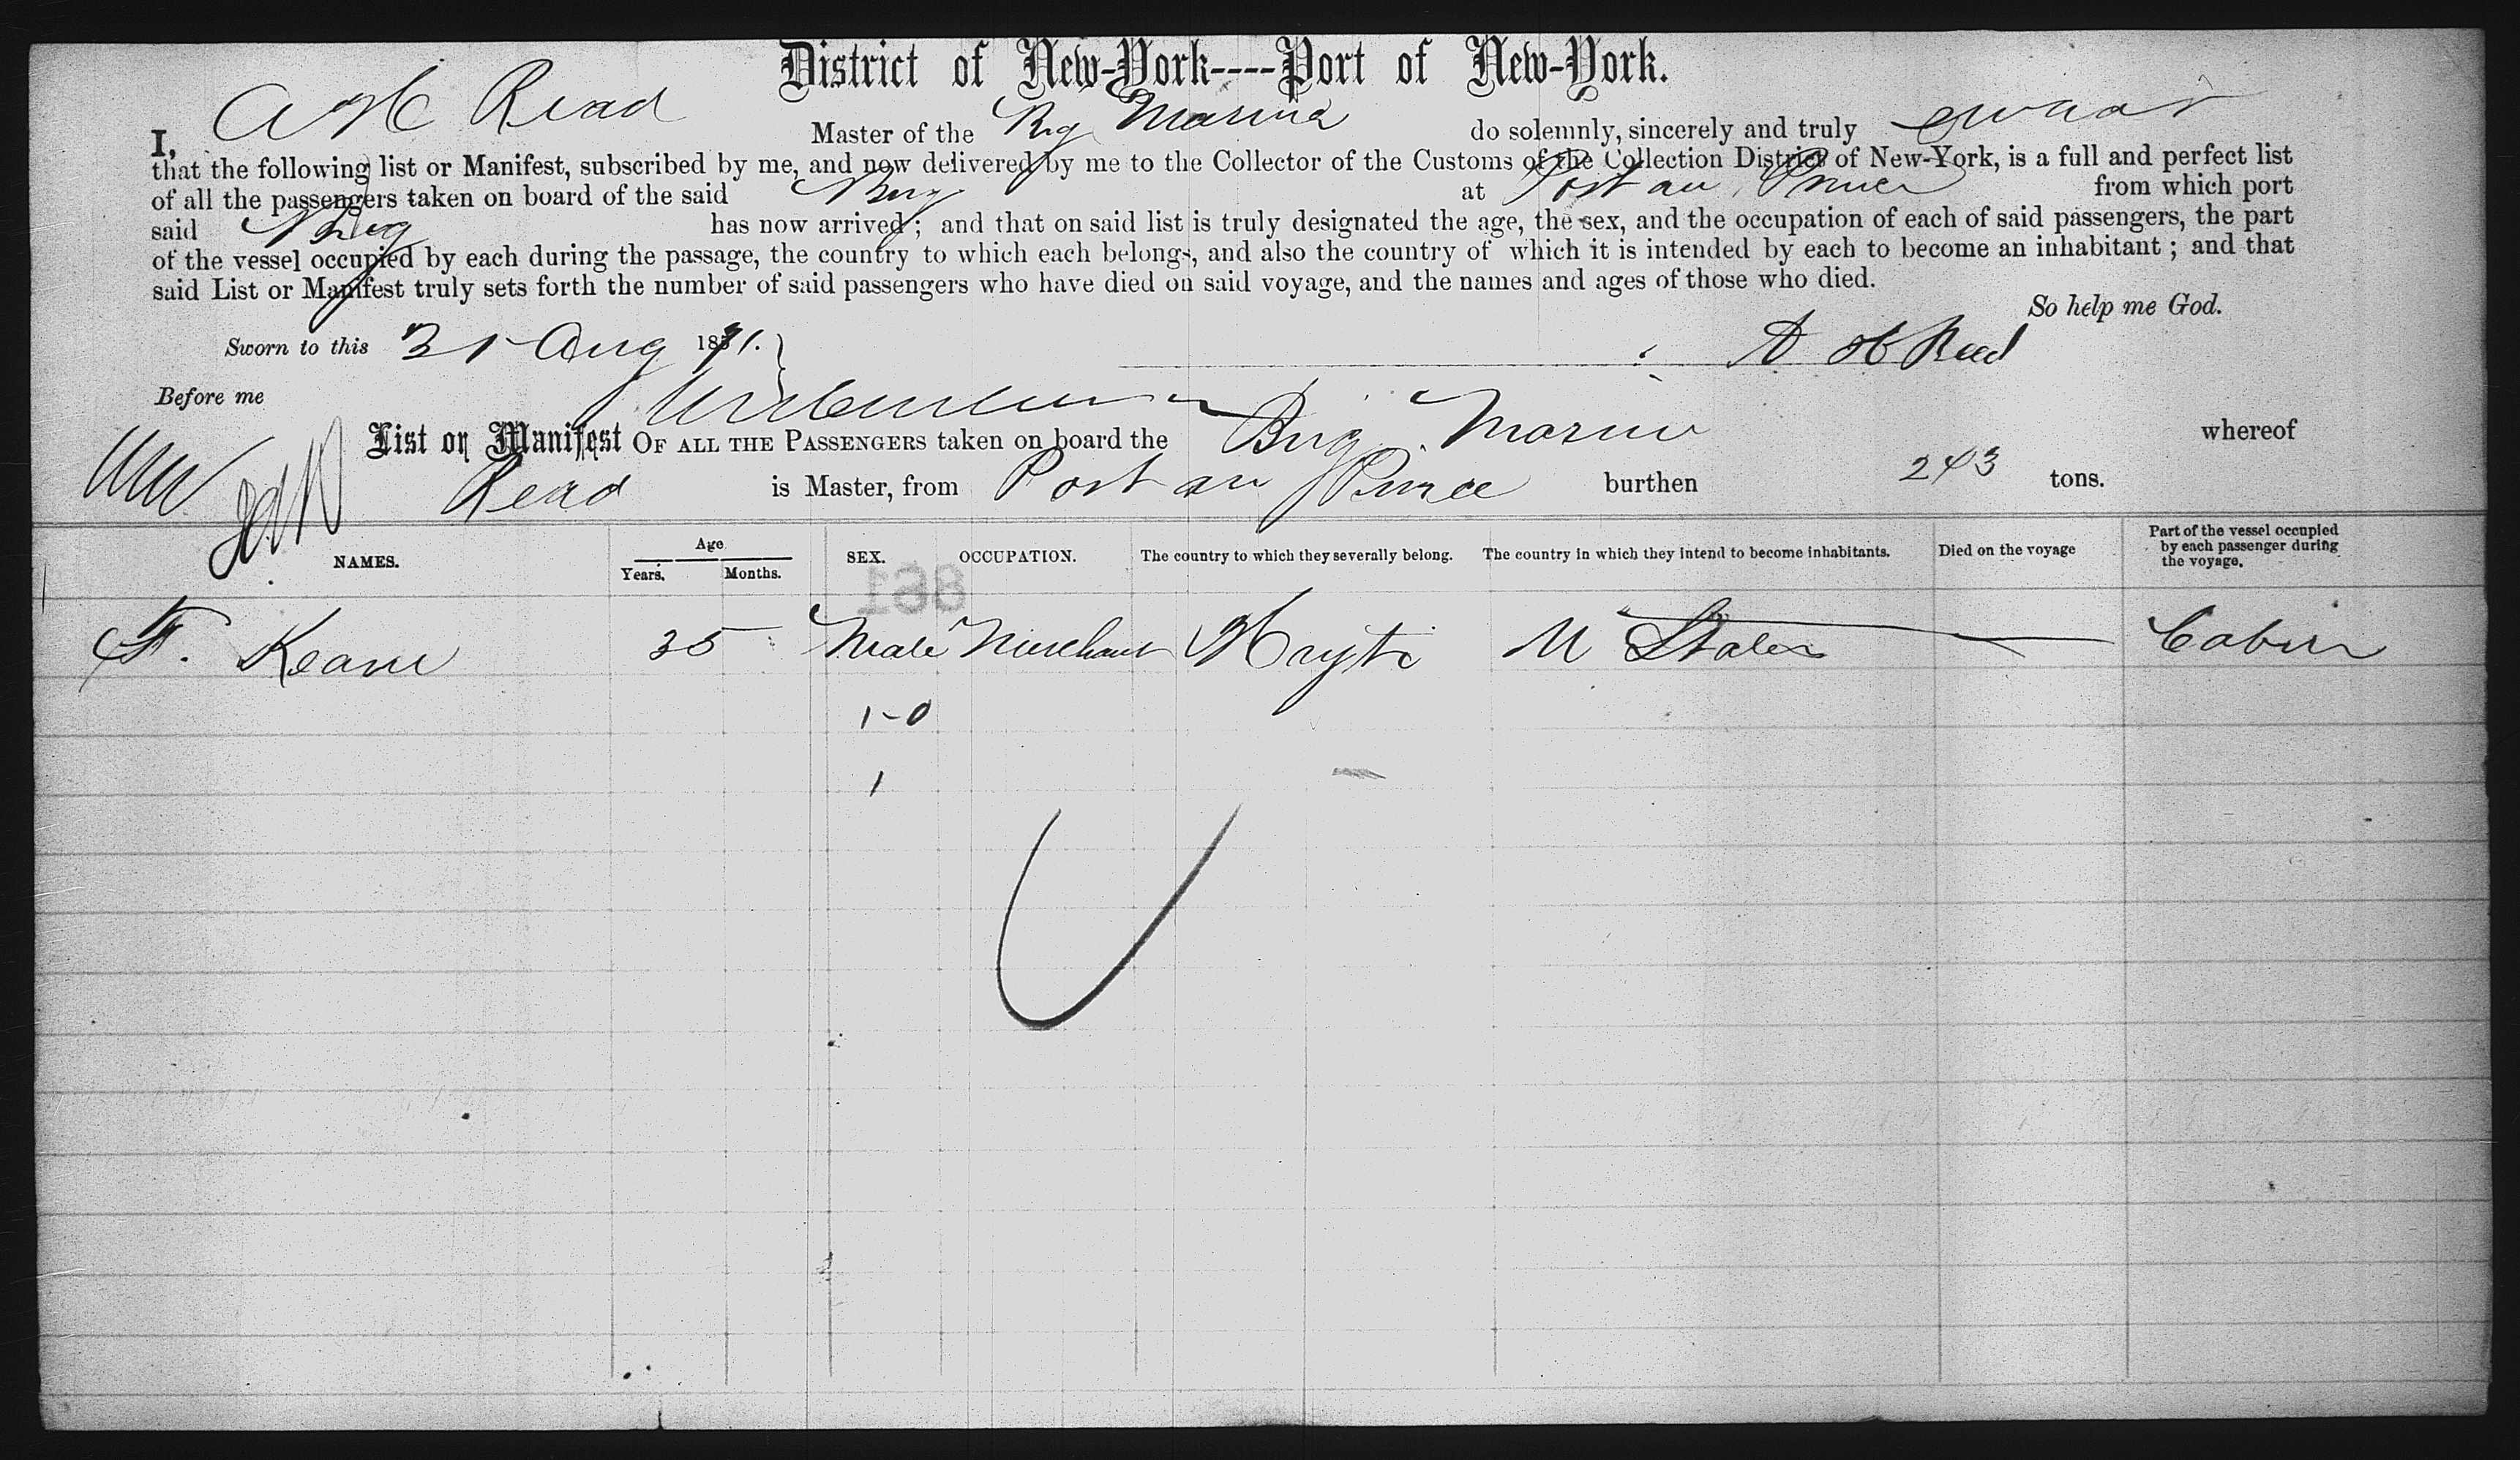 District of New-York----Port of New-York.
I, A H Read Master of the Brg Marina do solemnly, sincerely and truly swear
that the following list or Manifest, subscribed by me, and now delivered by me to the Collector of the Customs of the Collection District of New-York, is a full and perfect list
of all the passengers taken on board of the said Brig at Port au Prince from which port
said Brig has now arrived; and that on said list is truly designated the age, the sex, and the occupation of each of said passengers, the part
of the vessel occupied by each during the passage, the country to which each belongs, and also the country of which it is intended by each to become an inhabitant; and that
said List or Manifest truly sets forth the number of said passengers who have died on said voyage, and the names and ages of those who died.
So help me God.
Sworn to this 31 Aug 1871. A H Read
Before me
List or Manifest OF ALL THE PASSENGERS taken on board the Brig Marina whereof
Read is Master, from Port au Prince burthen 243 tons.
NAMES. Age Years. Months. SEX. OCCUPATION. The country to which they severally belong. The country in which they intend to become inhabitants. Died on the voyage Part of the vessel occupied by each passenger during the voyage.
861
F. Keane 35 Male Merchant Hayti U States Cabin
1-0
1